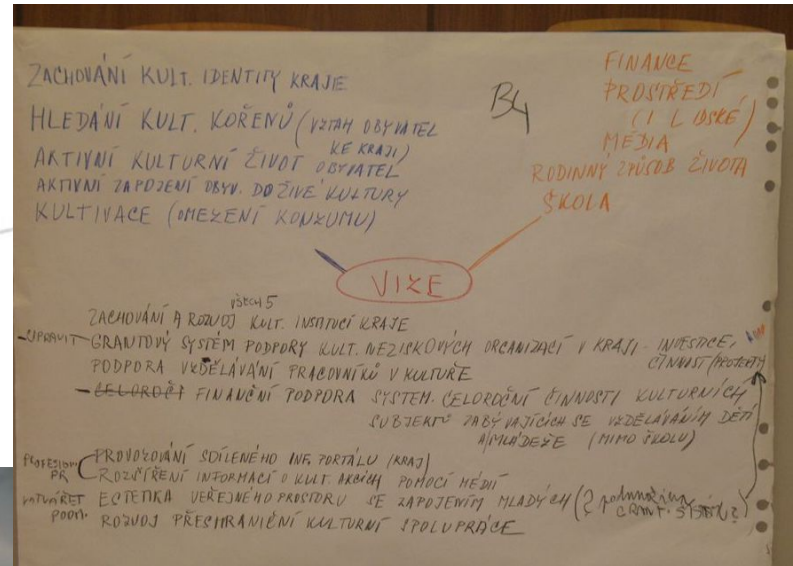 ZACHOVÁNÍ KULT. IDENTITY KRAJE
HLEDÁNÍ KULT. KOŘENŮ (VZTAH OBYVATEL
KE KRAJI)
AKTIVNÍ KULTURNÍ ŽIVOT OBYVATEL
AKTIVNÍ ZAPOJENÍ OBYV. DO ŽIVÉ KULTURY
KULTIVACE (OMEZENÍ KONZUMU)
B4
FINANCE
PROSTŘEDÍ
(I LIDSKÉ)
MÉDIA
RODINNÝ ZPŮSOB ŽIVOTA
ŠKOLA
VIZE
VŠECH 5
ZACHOVÁNÍ A ROZVOJ KULT. INSTITUCÍ KRAJE
UPRAVIT - GRANTOVÝ SYSTÉM PODPORY KULT. NEZISKOVÝCH ORGANIZACÍ V KRAJI - INVESTICE,
ČINNOST (PROJEKTY)
PODPORA VZDĚLÁVÁNÍ PRACOVNÍKŮ V KULTUŘE
- CELOROČÍ FINANČNÍ PODPORA SYSTEM. CELOROČNÍ ČINNOSTI KULTURNÍCH
SUBJEKTŮ ZABÝVAJÍCÍCH SE VZDĚLÁVÁNÍM DĚTÍ
A MLÁDEŽE (MIMO ŠKOLU)
PR
PROVOZOVÁNÍ SDÍLENÉHO INF. PORTÁLU (KRAJ)
ROZŠÍŘENÍ INFORMACÍ O KULT. AKCÍCH POMOCÍ MÉDIÍ
VYTVÁŘET PODM.
ESTETIKA VEŘEJNÉHO PROSTORU SE ZAPOJENÍM MLADÝCH (? GRANT.
ROZVOJ PŘESHRANIČNÍ KULTURNÍ SPOLUPRÁCE